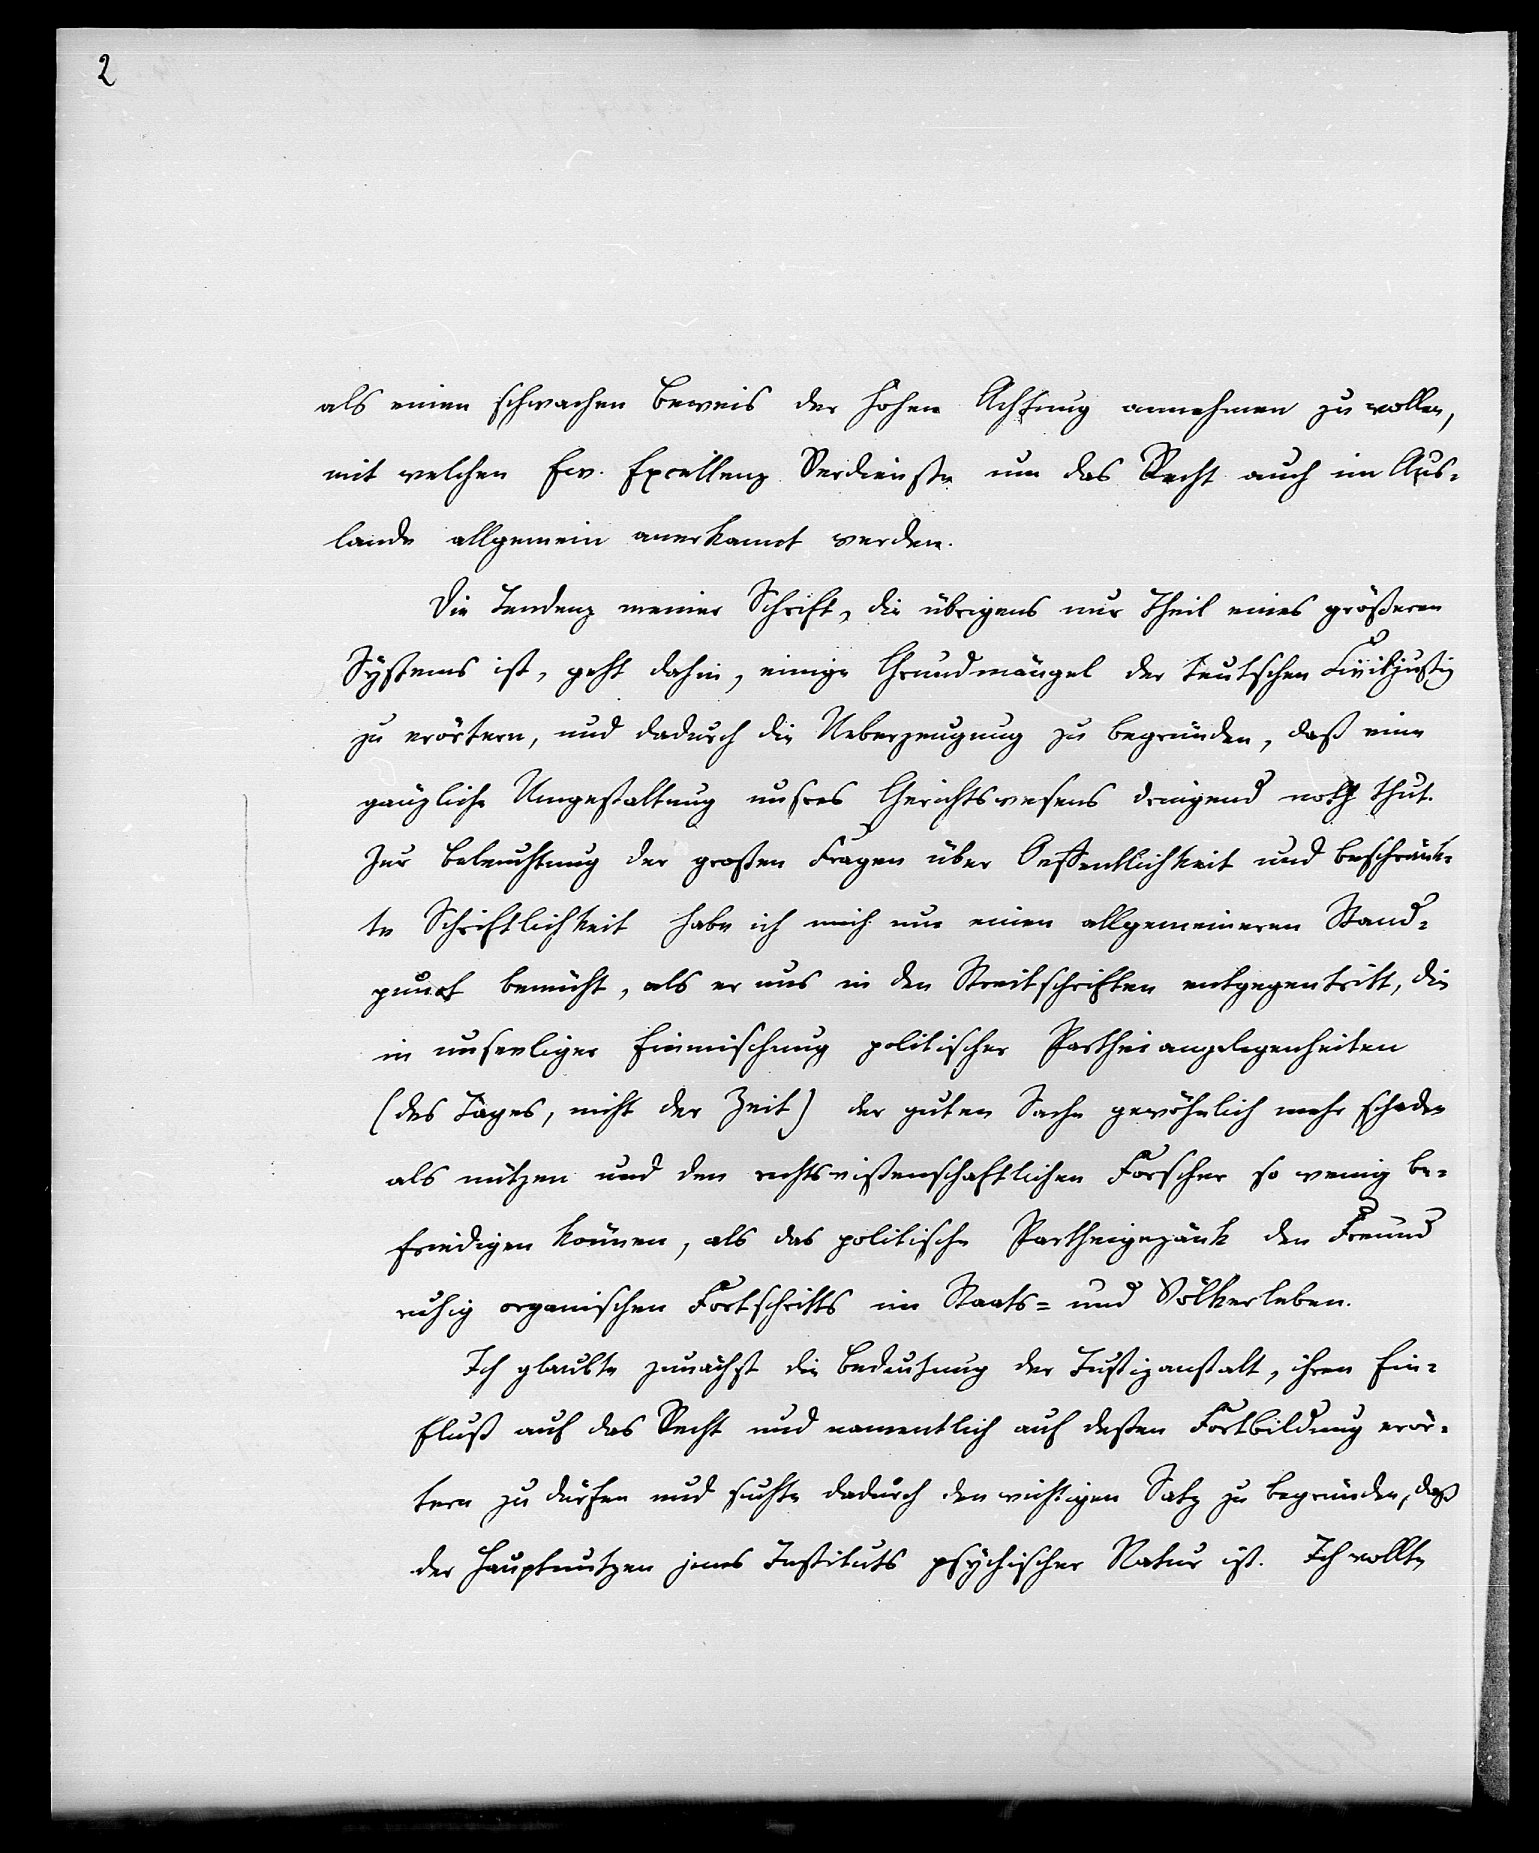 2
als einen schwachen Beweis der hohen Achtung annehmen zu wollen,
mit welchen Ew. Excellenz Verdienste um das Recht auch im Aus-
lande allgemein anerkannt werden.
Die Tendenz meiner Schrift, die übrigens nur Theil eines größeren
Systems ist, geht dahin, einige Grundmängel der teutschen Civiljustiz
zu erörtern, und dadurch die Ueberzeugung zu begründen, daß eine
gänzliche Umgestaltung unsres Gerichtswesens dringend noth thut.
Zur Beleuchtung der großen Fragen über Oeffentlichkeit und beschränk-
te Schriftlichkeit habe ich mich um einen allgemeineren Stand-
punct bemüht, als er uns in den Streitschriften entgegentritt, die
in unseeliger Einmischung politischer Partheiangelegenheiten
(des Tages, nicht der Zeit) der guten Sache gewöhnlich mehr schaden
als nützen und den rechtswißenschaftlichen Forscher so wenig be-
friedigen können, als das politische Partheigezänk den Freund
ruhig organischen Fortschritts im Staats- und Völkerleben.
Ich glaubte zunächst die Bedeutung der Justizanstalt, ihren Ein-
fluß auf das Recht und namentlich auf deßen Fortbildung erör-
tern zu dürfen und suchte dadurch den wichtigen Satz zu begründen, daß
der Hauptnutzen jenes Instituts psychischer Natur ist. Ich wollte